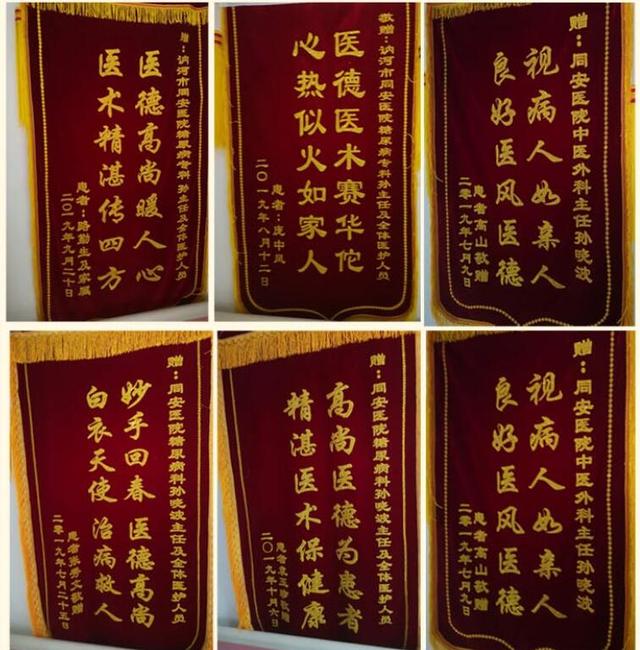 赠：讷河市同安医院糖尿病专科孙主任及全体医护人员
医德高尚暖人心
医术精湛传四方
患者：路勤生及家属
二〇一九年九月二十日
敬赠：讷河市同安医院糖尿病专科孙主任及全体医护人员
医德医术赛华佗
心热似火如家人
患者：庞中凤
二〇一九年八月十二日
赠：同安医院中医外科主任孙晓波
视病人如亲人
良好医风医德
患者高山敬赠
二零一九年七月九日
赠：同安医院糖尿病科孙晓波主任及全体医护人员
妙手回春 医德高尚
白衣天使 治病救人
患者张 文敬赠
二零一九年七月二十五日
赠：同安医院糖尿病科孙晓波主任及全体医护人员
高尚医德为患者
精湛医术保健康
患者 玉 敬赠
二〇一九年十月六日
赠：同安医院中医外科主任孙晓波
视病人如亲人
良好医风医德
患者高山敬赠
二零一九年七月九日